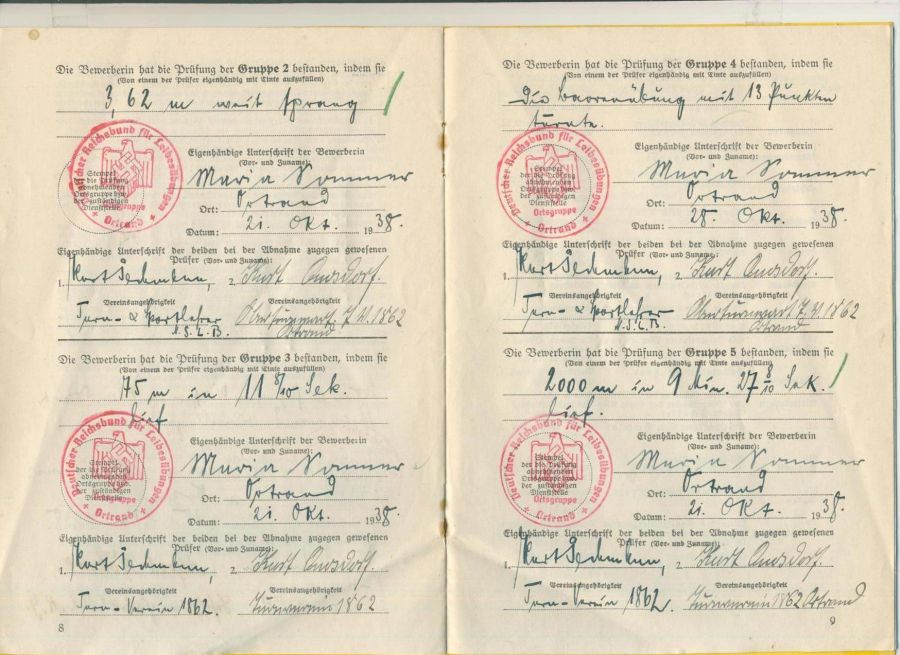 Die Bewerberin hat die Prüfung der Gruppe 2 bestanden, indem sie
(Von einem der Prüfer eigenhändig mit Tinte auszufüllen)
3,62 m weit sprang
Deutscher Reichsbund für Leibesübungen
Ortsgruppe
Ortrand
Stempel
der die Prüfung
abnehmenden
Ortsgruppe bzw.
der zuständigen
Dienststelle
Eigenhändige Unterschrift der Bewerberin
(Vor- und Zuname):
Maria Sommer
Ort: Ortrand
Datum: 21. Okt. 1938.
Eigenhändige Unterschrift der beiden bei der Abnahme zugegen gewesenen
Prüfer (Vor- und Zuname):
1. Kurt 2. Kurt Amsdorf.
Vereinsangehörigkeit Vereinsangehörigkeit
Turn- & Sportlehrer Oberturnwart T.V. 1862
N.S.L.B. Ortrand
Die Bewerberin hat die Prüfung der Gruppe 3 bestanden, indem sie
(Von einem der Prüfer eigenhändig mit Tinte auszufüllen)
75 m in 11 8/10 Sek.
lief
Deutscher Reichsbund für Leibesübungen
Ortsgruppe
Ortrand
Stempel
der die Prüfung
abnehmenden
Ortsgruppe bzw.
der zuständigen
Dienststelle
Eigenhändige Unterschrift der Bewerberin
(Vor- und Zuname):
Maria Sommer
Ort: Ortrand
Datum: 21. Okt. 1938.
Eigenhändige Unterschrift der beiden bei der Abnahme zugegen gewesenen
Prüfer (Vor- und Zuname):
1. Kurt 2. Kurt Amsdorf.
Vereinsangehörigkeit Vereinsangehörigkeit
Turn-Verein 1862. Turnverein 1862
8
Die Bewerberin hat die Prüfung der Gruppe 4 bestanden, indem sie
(Von einem der Prüfer eigenhändig mit Tinte auszufüllen)
die Barrenübung mit 13 Punkten
turnte.
Deutscher Reichsbund für Leibesübungen
Ortsgruppe
Ortrand
Stempel
der die Prüfung
abnehmenden
Ortsgruppe bzw.
der zuständigen
Dienststelle
Eigenhändige Unterschrift der Bewerberin
(Vor- und Zuname):
Maria Sommer
Ort: Ortrand
Datum: 28. Okt. 1938.
Eigenhändige Unterschrift der beiden bei der Abnahme zugegen gewesenen
Prüfer (Vor- und Zuname):
1. Kurt 2. Kurt Amsdorf.
Vereinsangehörigkeit Vereinsangehörigkeit
Turn- & Sportlehrer Oberturnwart T.V. 1862
N.S.L.B. Ortrand
Die Bewerberin hat die Prüfung der Gruppe 5 bestanden, indem sie
(Von einem der Prüfer eigenhändig mit Tinte auszufüllen)
2000 m in 9 Min. 27 8/10 Sek.
lief.
Deutscher Reichsbund für Leibesübungen
Ortsgruppe
Ortrand
Stempel
der die Prüfung
abnehmenden
Ortsgruppe bzw.
der zuständigen
Dienststelle
Eigenhändige Unterschrift der Bewerberin
(Vor- und Zuname):
Maria Sommer
Ort: Ortrand
Datum: 21. Okt. 1938.
Eigenhändige Unterschrift der beiden bei der Abnahme zugegen gewesenen
Prüfer (Vor- und Zuname):
1. Kurt 2. Kurt Amsdorf.
Vereinsangehörigkeit Vereinsangehörigkeit
Turn-Verein 1862. Turnverein 1862 Ortrand
9